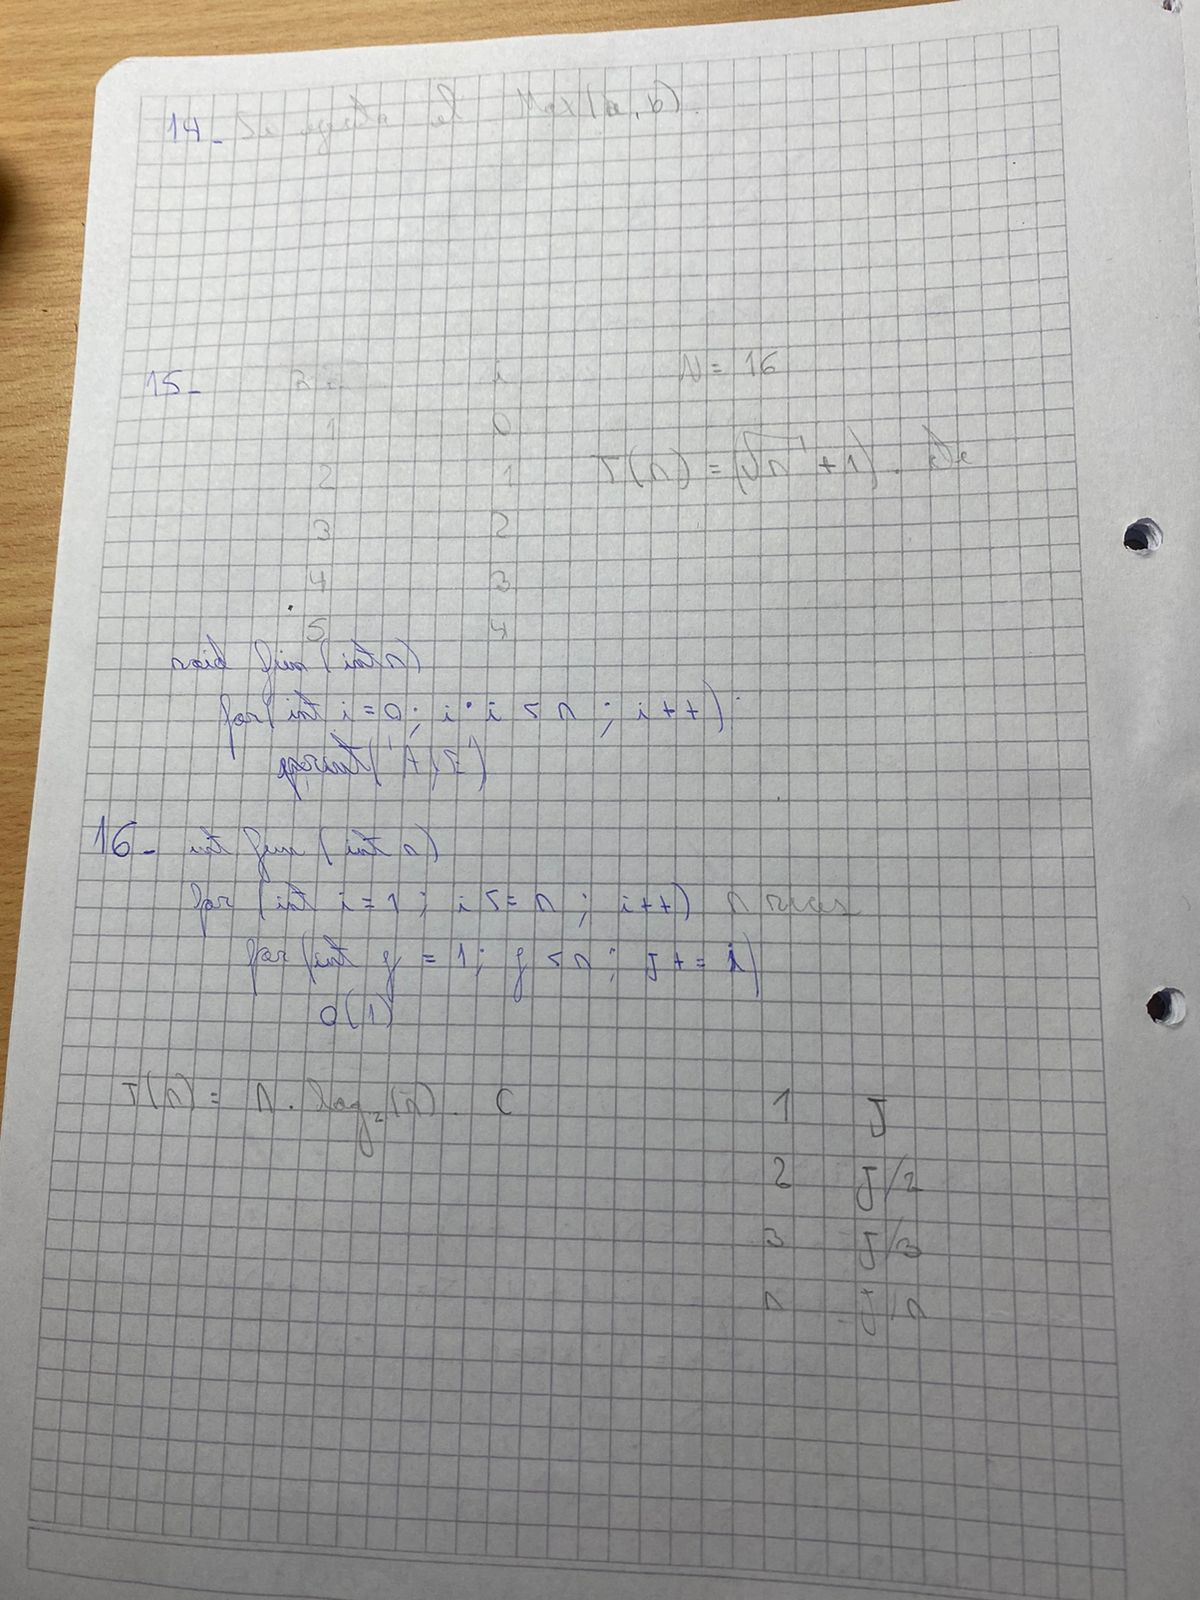 14- Se ejecuta el Max(a, b).
15- i N = 16
1 0
2 1 T(n) = (√n + 1) . cte
3 2
4 3
5 4
void fun (int n)
for( int i = 0 ; i * i < n ; i + + )
print(
16- int fun ( int n)
for (int i = 1 ; i <= n ; i++) n veces
for (int j = 1; j < n ; J + = i)
O(1)
T(n) = n . log₂(n) . C 1 J
2 J/2
3 J/3
n J/n